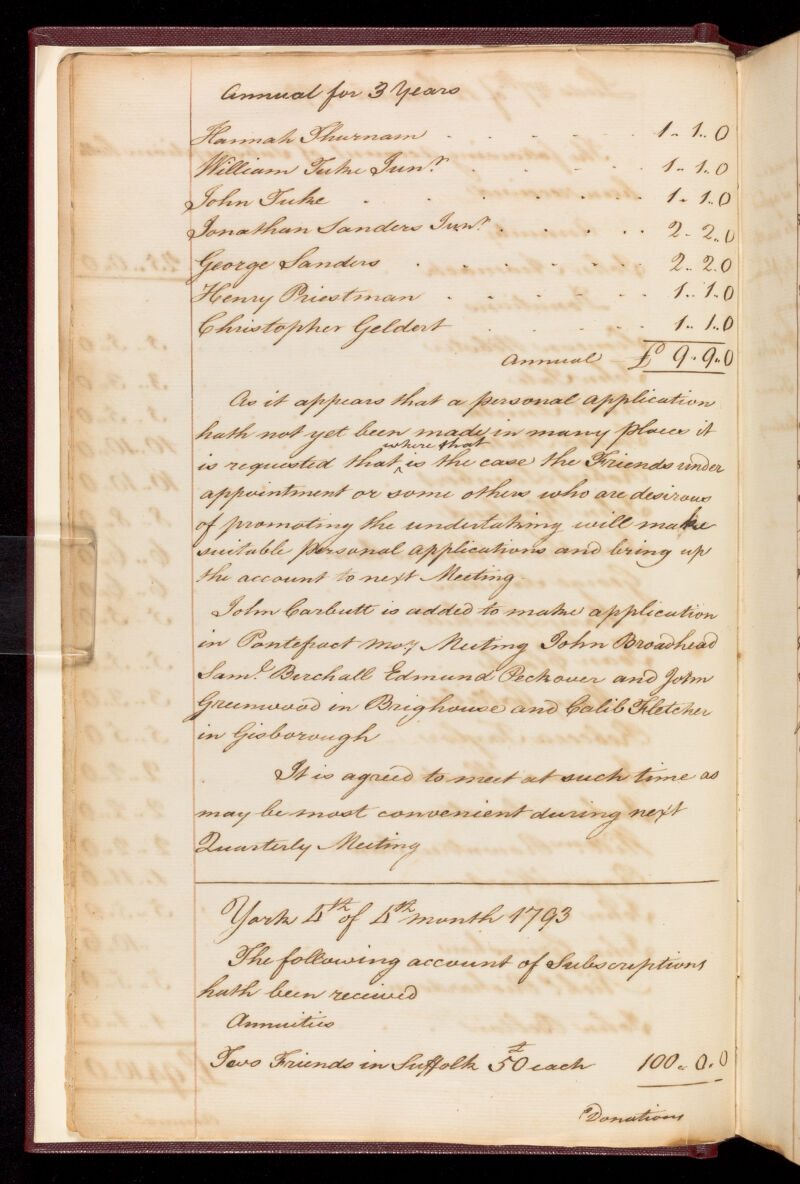 Annual for 3 Years
Hannah Thurnam . . . . . . 1.. 1.. 0
William Tuke Junr. . . . . . 1.. 1.. 0
John Tuke . . . . . . . . 1. 1.. 0
Jonathan Sanders Junr. . . . . . 2.. 2.. 0
George Sanders . . . . . . . 2.. 2.. 0
Henry Priestman . . . . . . 1.. 1.. 0
Christopher Geldert . . . . . 1.. 1.. 0
Annual £ 9.. 9.. 0
As it appears that a personal application
hath not yet been made in many places it
is requested that where that is the case the Friends under
appointment or some others who are desirous
of promoting the undertaking will make
suitable personal applications and bring up
the account to next Meeting
John Carbutt is added to make application
in Pontefract Moy. Meeting John Broadhead
Saml. Berchall Edmund Peckover and John
Greenwood in Brighouse and Calib Fletcher
in Gisborough
It is agreed to meet at such time as
may be most convenient during next
Quarterly Meeting
York 4th of 4th month 1793
The following account of Subscriptions
hath been received
Annuities
Two Friends in Suffolk £50 each 100.. 0.. 0
Donations